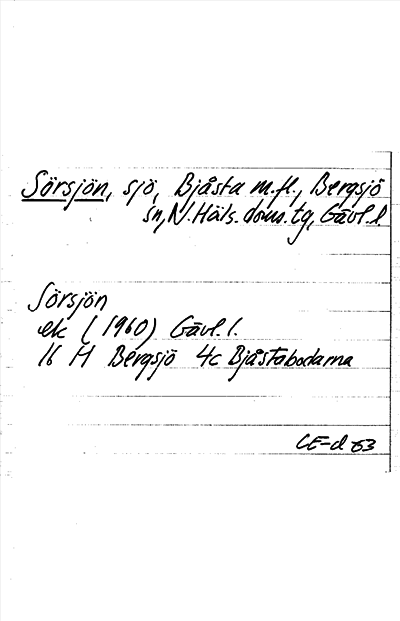 Sörsjön, sjö, Bjåsta m.fl., Bergsjö
sn, N.Häls. doms.tg, Gävl.l.
Sörsjön
ek (1960) Gävl. l.
16 H Bergsjö 4c Bjåstabodarna
CE-d 63